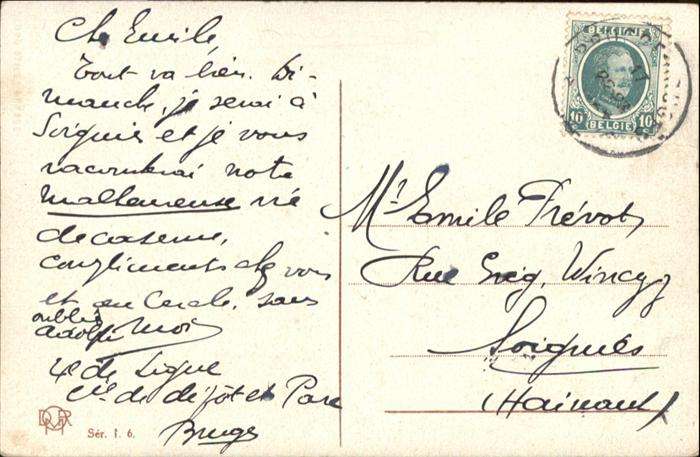 Che Emile,
Tout va bien. Di-
manche, je serai à
Soignies et je vous
raconterai notre
malheureuse vie
de caserne,
compliments chez vous
et au Cercle, sans
oublier
Adolphe Moi
4e de Ligne
Cie de dépôt et Parc
Bruges
Sér. 1. 6.
BELGIQUE
10 10
BELGIE
Mr Emile Prévot
Rue Grég. Wincqz
Soignies
(Hainaut)